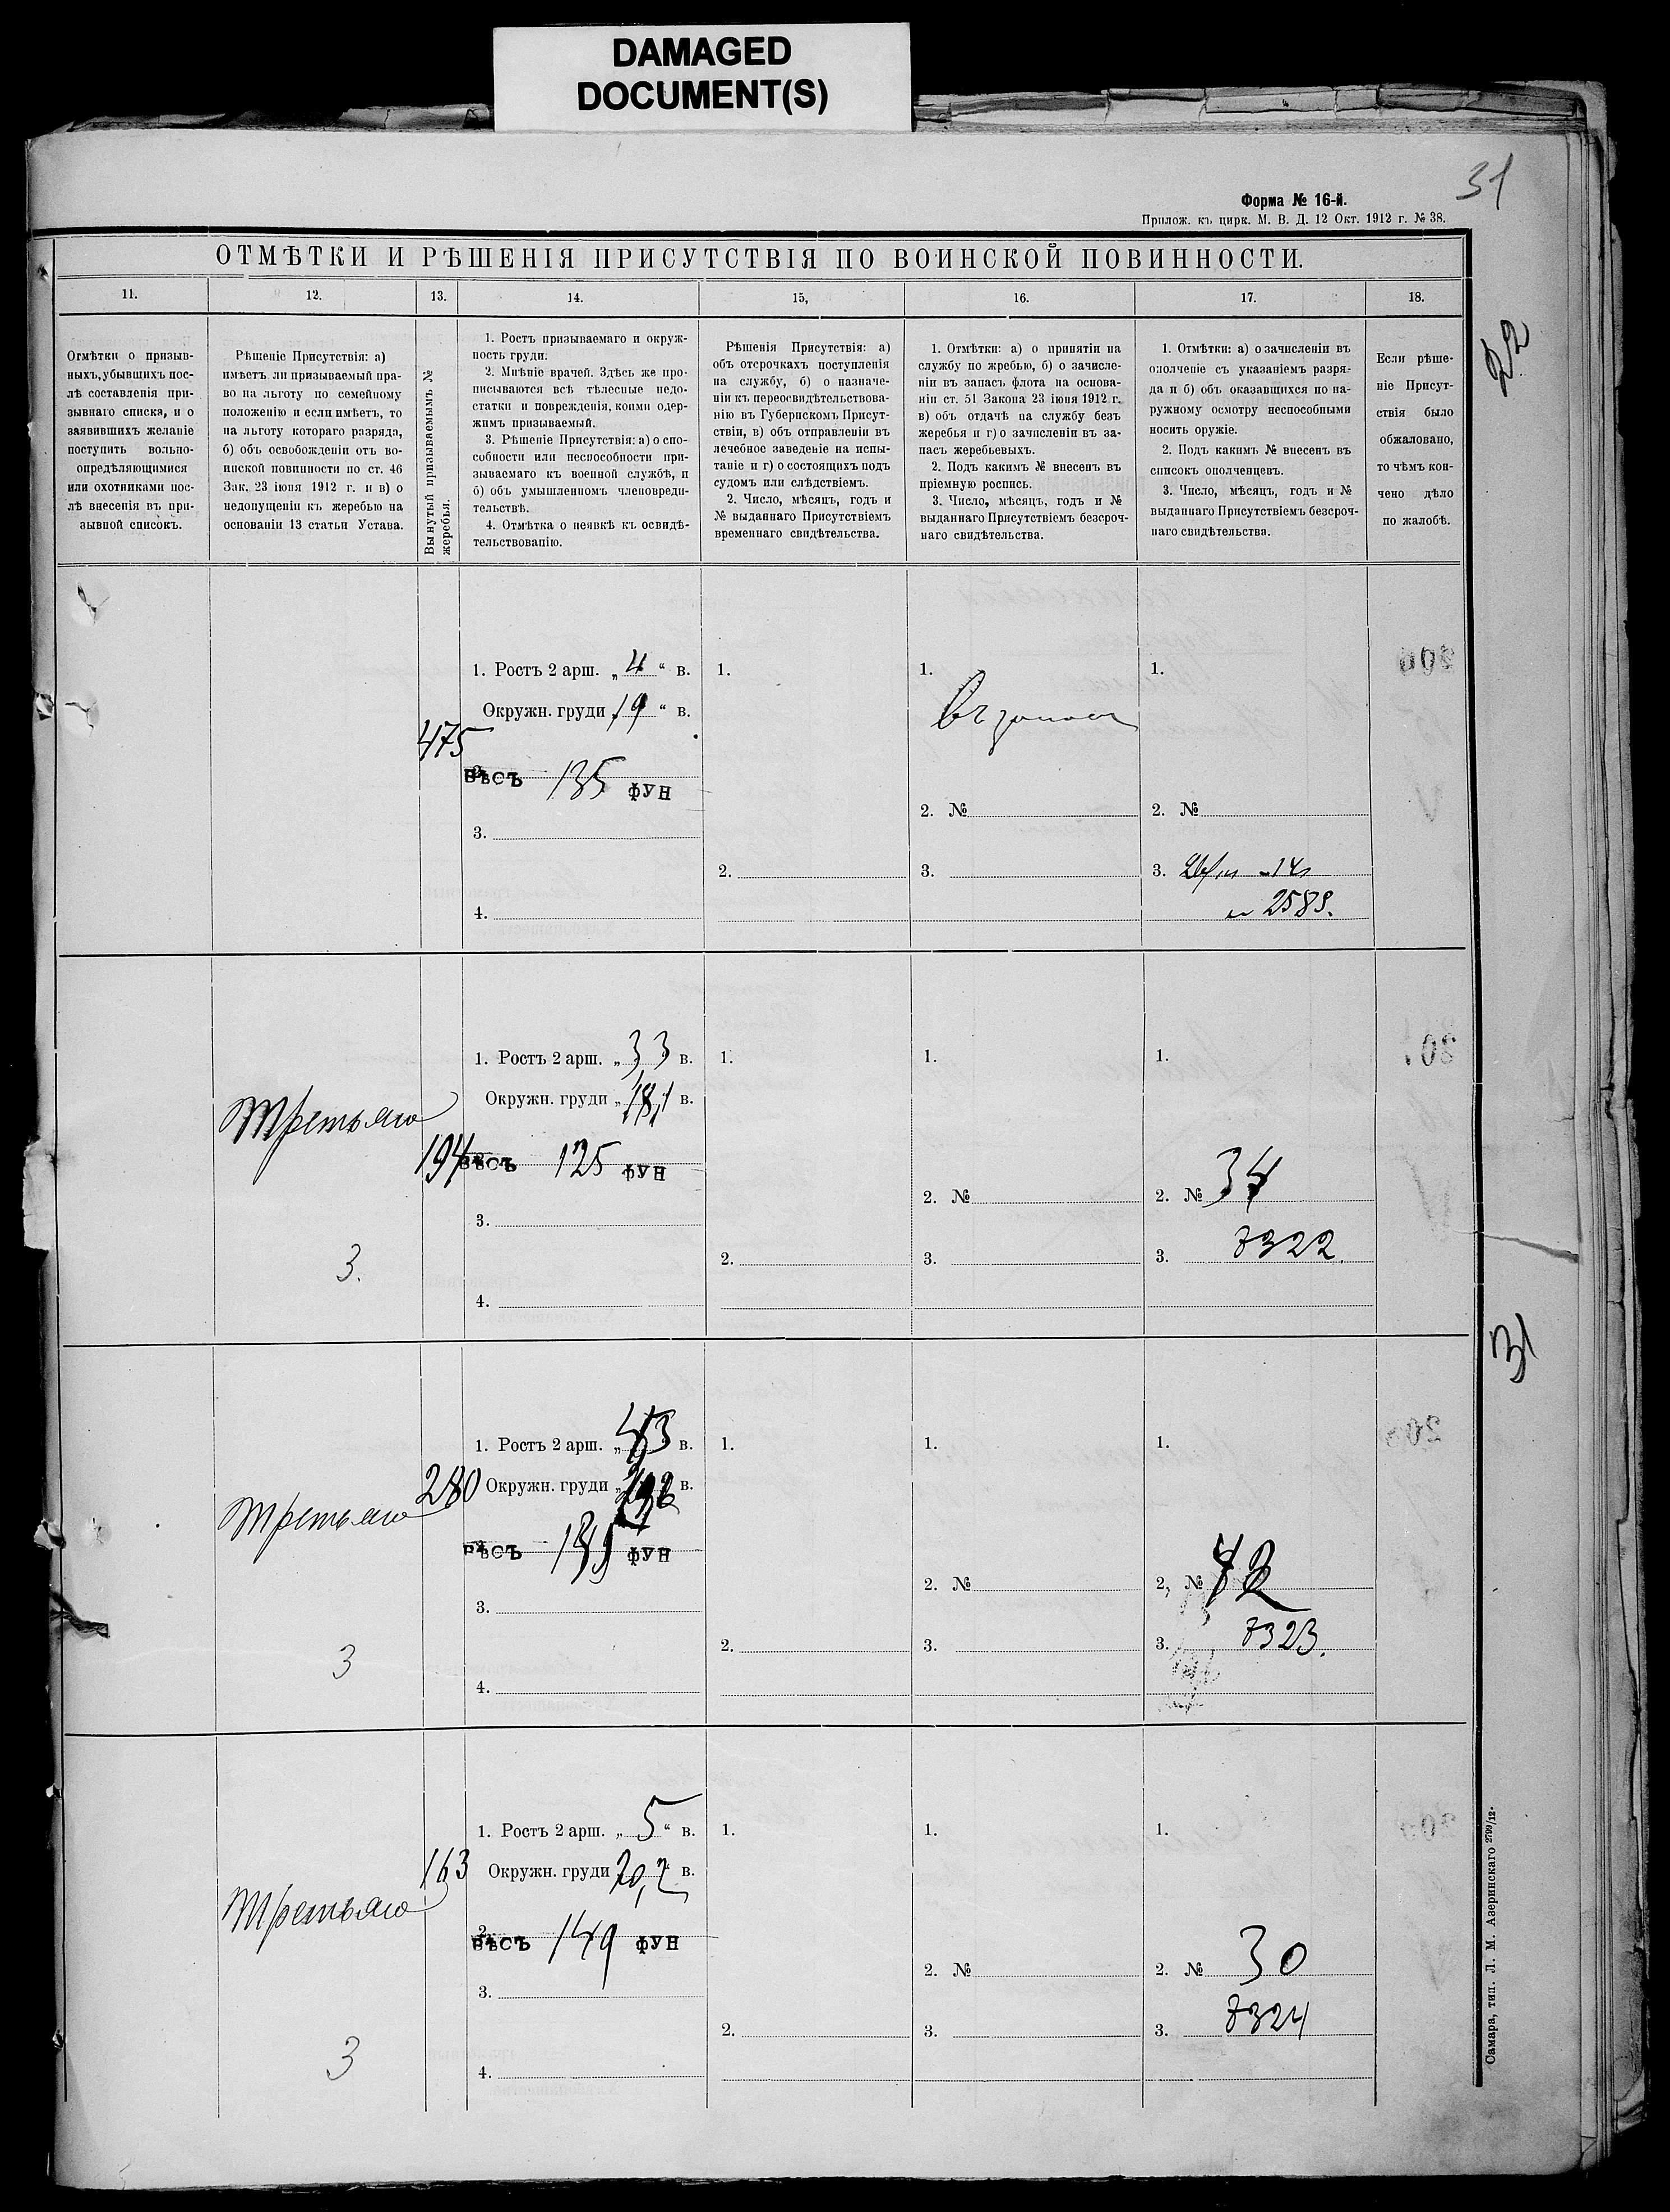 DAMAGED
DOCUMENT(S)
31
Форма № 16-й.
Прилож. къ цирк. М. В. Д. 12 Окт. 1912 г. № 38.
ОТМѢТКИ И РѢШЕНІЯ ПРИСУТСТВІЯ ПО ВОИНСКОЙ ПОВИННОСТИ.
11. 12. 13. 14. 15, 16. 17. 18.
Отмѣтки о призыв-
ныхъ, убывшихъ пос-
лѣ составленія при-
зывнаго списка, и о
заявившихъ желаніе
поступить вольно-
опредѣляющимися
или охотниками пос-
лѣ внесенія въ при-
зывной списокъ.
Рѣшеніе Присутствія: а)
имѣетъ ли призываемый пра-
во на льготу по семейному
положенію и если имѣетъ, то
на льготу котораго разряда,
б) объ освобожденіи отъ во-
инской повинности по ст. 46
Зак. 23 іюня 1912 г. и в) о
недопущеніи къ жеребью на
основаніи 13 статьи Устава.
Вынутый призываемымъ №
жеребья.
1. Ростъ призываемаго и окруж-
ность груди.
2. Мнѣніе врачей. Здѣсь же про-
писываются всѣ тѣлесные недо-
статки и поврежденія, коими одер-
жимъ призываемый.
3. Рѣшеніе Присутствія: а) о спо-
собности или неспособности при-
зываемаго къ военной службѣ, и
б) объ умышленномъ членовреди-
тельствѣ.
4. Отмѣтка о неявкѣ къ освидѣ-
тельствованію.
Рѣшенія Присутствія: а)
объ отсрочкахъ поступленія
на службу, б) о назначе-
ніи къ переосвидѣтельствова-
нію въ Губернскомъ Присут-
ствіи, в) объ отправленіи въ
лечебное заведеніе на испы-
таніе и г) о состоящихъ подъ
судомъ или слѣдствіемъ.
2. Число, мѣсяцъ, годъ и
№ выданнаго Присутствіемъ
временнаго свидѣтельства.
1. Отмѣтки: а) о принятіи на
службу по жребью, б) о зачисле-
ніи въ запасъ флота на основа-
ніи ст. 51 Закона 23 іюня 1912 г.
в) объ отдачѣ на службу безъ
жеребья и г) о зачисленіи въ за-
пасъ жеребьевыхъ.
2. Подъ какимъ № внесенъ въ
пріемную роспись.
3. Число, мѣсяцъ, годъ и №
выданнаго Присутствіемъ безсроч-
наго свидѣтельства.
1. Отмѣтки: а) о зачисленіи въ
ополченіе съ указаніемъ разря-
да и б) объ оказавшихся по на-
ружному осмотру неспособными
носить оружіе.
2. Подъ какимъ № внесенъ въ
списокъ ополченцевъ.
3. Число, мѣсяцъ, годъ и №
выданнаго Присутствіемъ безсроч-
наго свидѣтельства.
Если рѣше-
ніе Присут-
ствія было
обжаловано,
то чѣмъ кон-
чено дѣло
по жалобѣ.
22
475
1. Ростъ 2 арш. „ 4 “ в.
Окружн. груди „ 19 “ в.
ВѢСЪ 135 ФУН
3.
4.
1.
2.
1.
Въ запас
2. №
3.
1.
2. №
3.
2589.
Третьяго
3.
194
1. Ростъ 2 арш. „ 3,3 в.
Окружн. груди „ 18,1 в.
ВѢСЪ 125 ФУН
3.
4.
1.
2.
1.
2. №
3.
1.
2. № 34
3. 7322.
31
Третьяго
3
280
1. Ростъ 2 арш. „ в.
Окружн. груди „ в.
ВѢСЪ ФУН
3.
4.
1.
2.
1.
2. №
3.
1.
2, №
3. 7323.
Третьяго
3
163
1. Ростъ 2 арш. „ 5 “ в.
Окружн. груди 20,2 в.
2.
ВѢСЪ 149 ФУН
3.
4.
1.
2.
1.
2. №
3.
1.
2. № 30
3. 7324
Самара, тип. Л. М. Азеринскаго 2799/12.